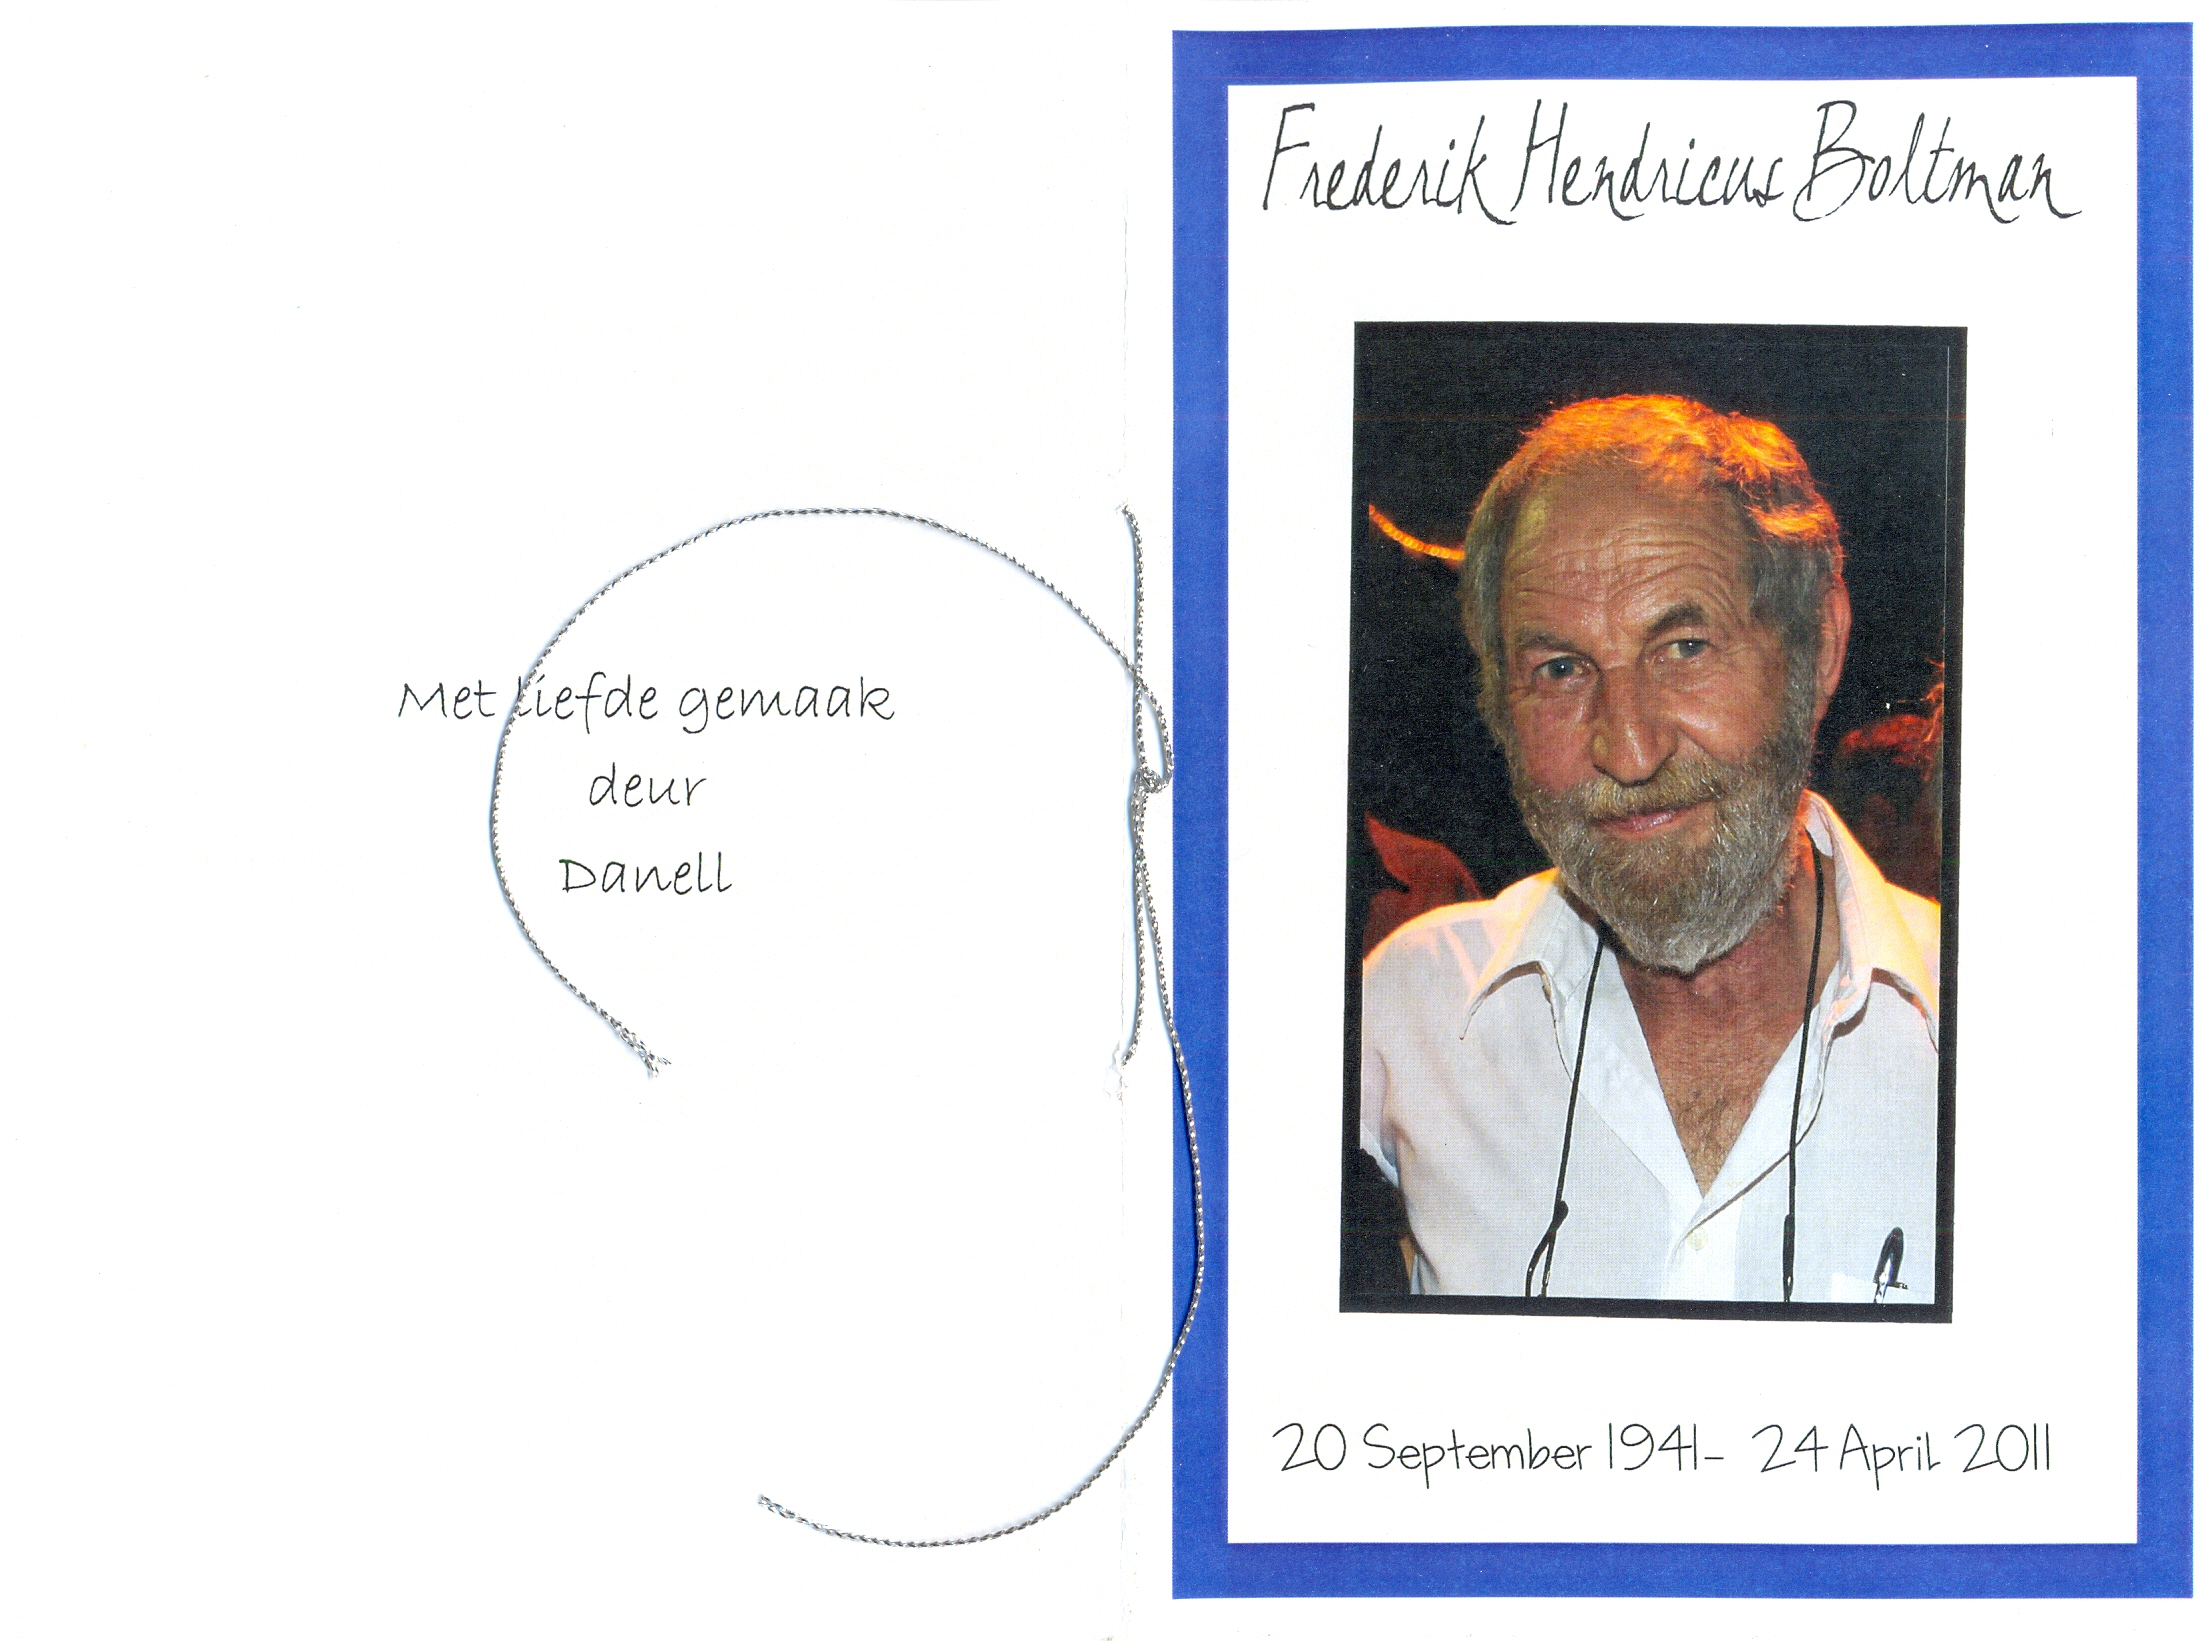 Met liefde gemaak
deur
Danell
Frederik Hendricus Boltman
20 September 1941- 24 April 2011